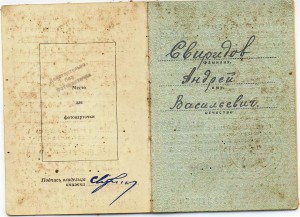 Место
для
фотокарточки
Подпись владельца
книжки
Свиридов
фамилия,
Андрей
имя
Васильевич
отчество